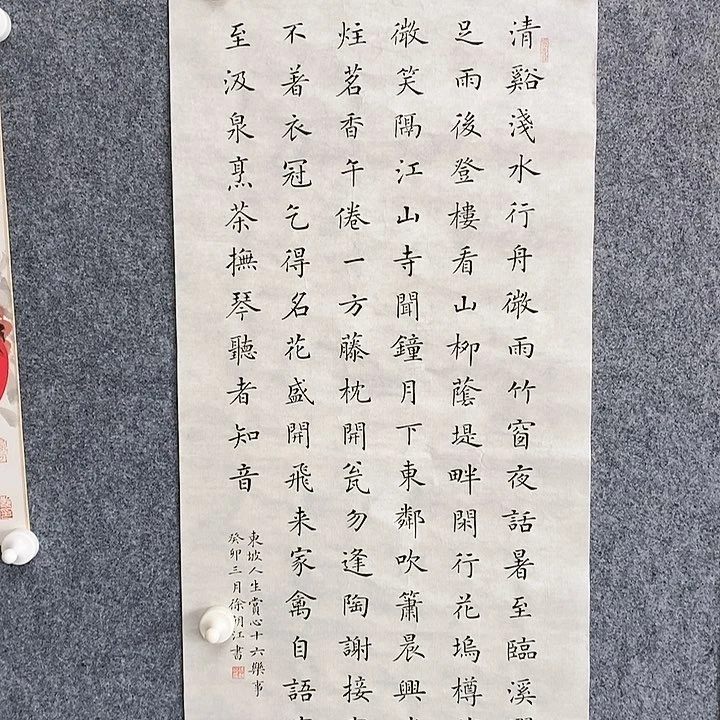 清谿淺水行舟微雨竹窗夜話暑至臨溪
足雨後登樓看山柳蔭堤畔閑行花塢樽
微笑隔江山寺聞鐘月下東鄰吹簫晨興
炷茗香午倦一方藤枕開瓮勿逢陶謝接
不着衣冠乞得名花盛開飛来家禽自語
至汲泉烹茶撫琴聽者知音
東坡人生賞心十六樂事
癸卯三月徐江書